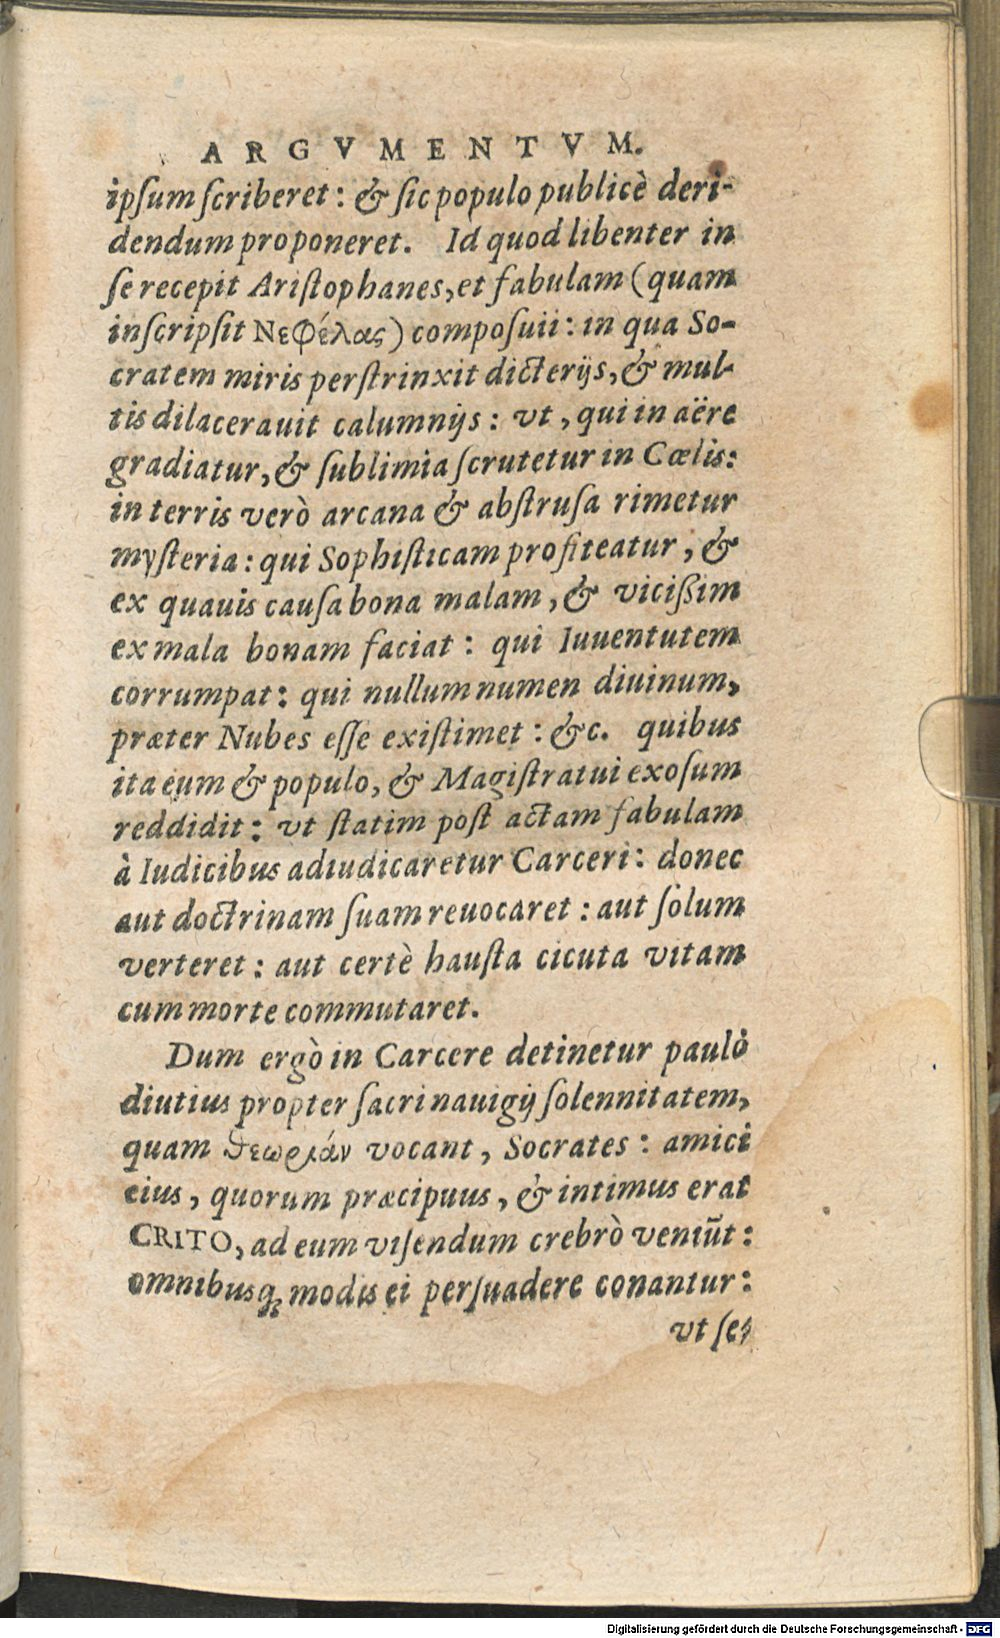 ARGVMENTVM.
ipſum ſcriberet: & ſic populo publicè deri-
dendum proponeret. Id quod libenter in
ſe recepit Ariſtophanes, et fabulam (quam
inſcripſit Νεφέλας) compoſuit: in qua So-
cratem miris perſtrinxit dicterijs, & mul-
tis dilacerauit calumnijs: vt, qui in aëre
gradiatur, & ſublimia ſcrutetur in Cœlis:
in terris verò arcana & abſtruſa rimetur
myſteria: qui Sophiſticam profiteatur, &
ex quauis cauſa bona malam, & vicißim
ex mala bonam faciat: qui Iuuentutem
corrumpat: qui nullum numen diuinum,
præter Nubes eſſe exiſtimet: &c. quibus
ita eum & populo, & Magiſtratui exoſum
reddidit: vt ſtatim poſt actam fabulam
à Iudicibus adiudicaretur Carceri: donec
aut doctrinam ſuam reuocaret: aut ſolum
verteret: aut certè hauſta cicuta vitam
cum morte commutaret.
Dum ergò in Carcere detinetur paulò
diutius propter ſacri nauigij ſolennitatem,
quam θεωριάν vocant, Socrates: amici
eius, quorum præcipuus, & intimus erat
CRITO, ad eum viſendum crebrò veniũt:
omnibusq; modis ei perſuadere conantur:
vt ſe,
Digitalisierung gefördert durch die Deutsche Forschungsgemeinschaft - DFG